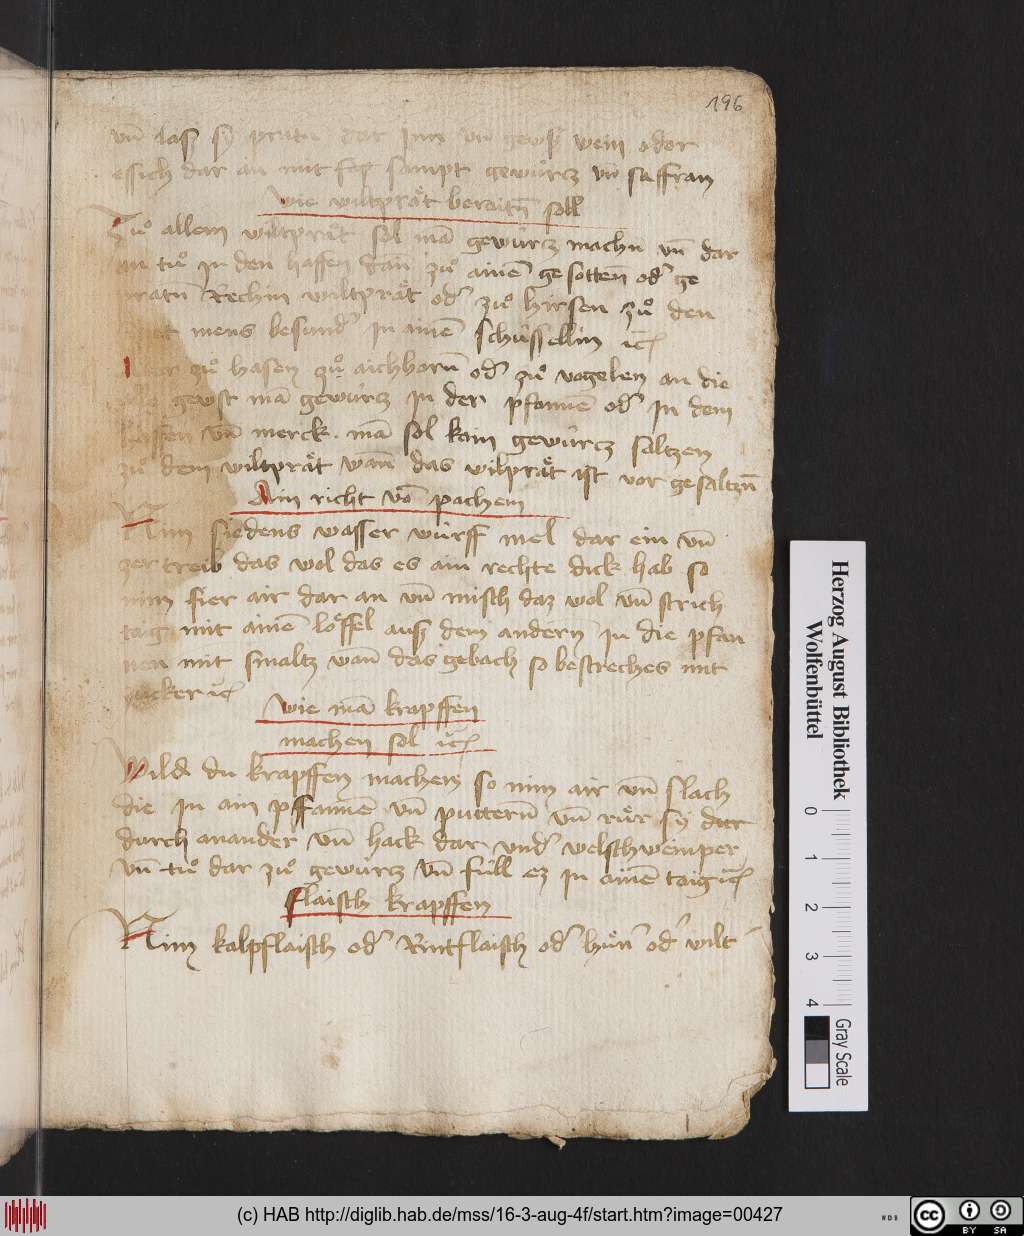 196
vn̄ lasz sy pratn dar Inn vn̄ gewsz wein oder
essich dar an mit sampt gewu̍rcz vn̄ saffran
wie wiltprät beraitn̄ soll
Zuͦ allem wiltprät sol mā gewu̍rcz machn vn̄ dar
an tuͦ in den haffen dan̄ zuͦ ainē gesotten od' ge
pratn̄ Rechin wiltprät od' zuͦ hirsen zuͦ den
mens besund' In ainē schu̍ssellin ꝛc
zuͦ hasen zuͦ aichhorn̄ od' zuͦ vogelen an die
gewst mā gewu̍rcz in der pfannē od' In dem
haffen vn̄ merck. mā sol kain gewu̍rcz saltzen
zuͦ dem wiltprät wan̄ das wilprät ist vor gesaltzn̄
Ain richt vō pachem
Nim siedens wasser wu̍rff mel dar ein vn̄
zertreib das wol das es ain rechte dick hab so
nim fier air dar an vn̄ misch daz wol vn̄ strich
taig mit ainē löffel ausz dem andern̄ in die pfan
nen mit smaltz wan̄ das gebach so bestreches mit
zucker ꝛc
wie mā krapffen
machen sol ꝛc
Wild du krapffen machen so nim air vn̄ slach
die in ain pffannē vn̄ puttern̄ vn̄ ru̍r sy dar
durch anander vn̄ hack dar vnd' welschweinper
vn̄ tuͦ dar zuͦ gewu̍rcz vn̄ fu̍ll ez in ainē taig ꝛc
flaisch krapffen
Nim kalpflaisch od' Rintflaisch od' hu̍n̄ od' wilt
Herzog August Bibliothek
Wolfenbüttel
0 1 2 3 4
Gray Scale
(c) HAB http://diglib.hab.de/mss/16-3-aug-4f/start.htm?image=00427
cc BY SA